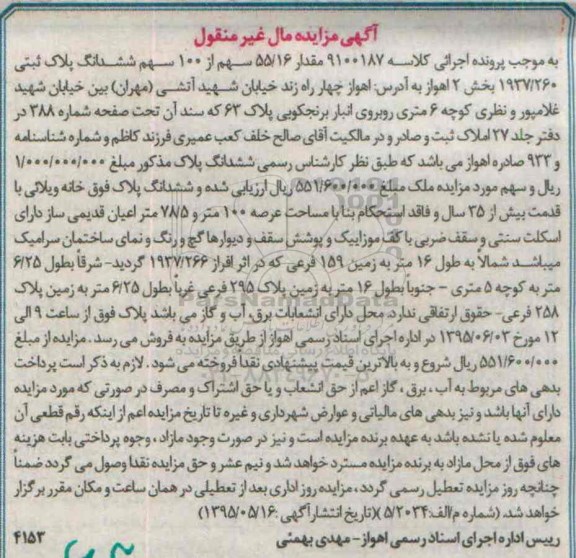 آگهی مزایده مال غیر منقول
به موجب پرونده اجرائی کلاسه ۹۱۰۰۱۸۷ مقدار ۵۵/۱۶ سهم از ۱۰۰ سهم ششدانگ پلاک ثبتی
۱۹۳۷/۲۶۰ بخش ۲ اهواز به آدرس: اهواز چهار راه زند خیابان شهید آتشی (مهران) بین خیابان شهید
غلامپور و نظری کوچه ۶ متری روبروی انبار برنجکوبی پلاک ۶۳ که سند آن تحت صفحه شماره ۳۸۸ در
دفتر جلد ۲۷ املاک ثبت و صادر و در مالکیت آقای صالح خلف کعب عمیری فرزند کاظم و شماره شناسنامه
و ۹۳۳ صادره اهواز می باشد که طبق نظر کارشناس رسمی ششدانگ پلاک مذکور مبلغ ۱/۰۰۰/۰۰۰/۰۰۰
ریال و سهم مورد مزایده ملک مبلغ ۵۵۱/۶۰۰/۰۰۰ ریال ارزیابی شده و ششدانگ پلاک فوق خانه ویلائی با
قدمت بیش از ۳۵ سال و فاقد استحکام بنا با مساحت عرصه ۱۰۰ متر و ۷۸/۵ متر اعیان قدیمی ساز دارای
اسکلت سنتی و سقف ضربی با کف موزاییک و پوشش سقف و دیوارها گچ و رنگ و نمای ساختمان سرامیک
میباشد شمالاً به طول ۱۶ متر به زمین ۱۵۹ فرعی که در اثر افراز ۱۹۳۷/۲۶۶ گردید- شرقاً بطول ۶/۲۵
متر به کوچه ۵ متری - جنوباً بطول ۱۶ متر به زمین پلاک ۲۹۵ فرعی غرباً بطول ۶/۲۵ متر به زمین پلاک
۲۵۸ فرعی- حقوق ارتفاقی ندارد، محل دارای انشعابات برق، آب و گاز می باشد پلاک فوق از ساعت ۹ الی
۱۲ مورخ ۱۳۹۵/۰۶/۰۳ در اداره اجرای اسناد رسمی اهواز از طریق مزایده به فروش می رسد. مزایده از مبلغ
۵۵۱/۶۰۰/۰۰۰ ریال شروع و به بالاترین قیمت پیشنهادی نقدا فروخته می شود. لازم به ذکر است پرداخت
بدهی های مربوط به آب، برق، گاز اعم از حق انشعاب و یا حق اشتراک و مصرف در صورتی که مورد مزایده
دارای آنها باشد و نیز بدهی های مالیاتی و عوارض شهرداری و غیره تا تاریخ مزایده اعم از اینکه رقم قطعی آن
معلوم شده یا نشده باشد به عهده برنده مزایده است و نیز در صورت وجود مازاد، وجوه پرداختی بابت هزینه
های فوق از محل مازاد به برنده مزایده مسترد خواهد شد و نیم عشر و حق مزایده نقدا وصول می گردد ضمناً
چنانچه روز مزایده تعطیل رسمی گردد، مزایده روز اداری بعد از تعطیلی در همان ساعت و مکان مقرر برگزار
خواهد شد. (شماره م/الف:۵/۲۰۳۴) (تاریخ انتشار آگهی: ۱۳۹۵/۰۵/۱۶)
رییس اداره اجرای اسناد رسمی اهواز - مهدی بهمئی
۴۱۵۳
ParsNamadData